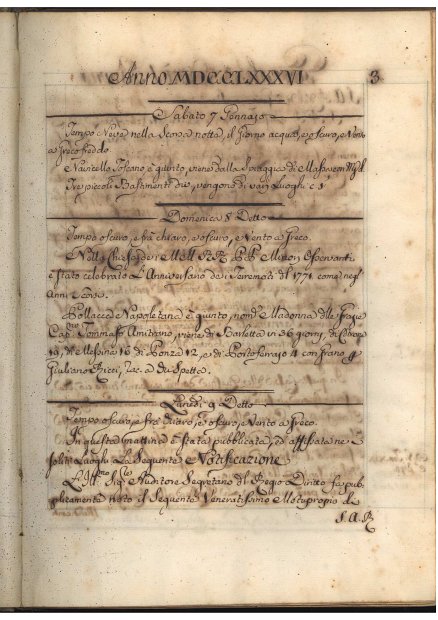 Anno MDCCLXXXVI
3
Sabato 7 Gennaro
Tempo Neve nella Scorsa notta, il Giorno acqua, e oscuro, e Vento
a Greco freddo.
Navicello Toscano è giunto, viene dalla Spiaggia di Massa con
Tre piccoli Bastimenti che vengono di vari Luoghi
Domenica 8 Detto
Tempo oscuro, e frà chiaro, e oscuro, e Vento a Greco.
Nella Chiesa dei M R R P P Minori Osservanti
è stato celebrato L'Anniversario dei Terremoti del 1771 come negl
Anni Scorsi.
Pollacca Napoletana è giunto, Madonna delle Grazie
Cap. Tommaso Amitrano, viene di Barletta in 36 giorni, di
di Messina 16 di Ponza 12, e di Porto Ferrajo 4 con grano
Giuliano Ricci,
Lunedi 9 Detto
Tempo oscuro, e frà chiaro, e oscuro, e Vento a Greco.
In questa mattina è stata pubblicata, ed affissata ne
soliti Luoghi La Seguente Notificazione
L' Sig. Auditore Segretario del Regio Diritto fa pub
blicamente noto il Seguente Veneratissimo Motuproprio di
S. A. R.